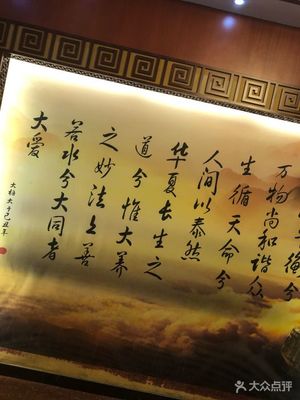 万物尚和谐众
生循天命兮
人间以泰然
华夏长生之
道兮惟大养
之妙法上善
若水兮大同者
大爱
大福太于己丑年
大众点评